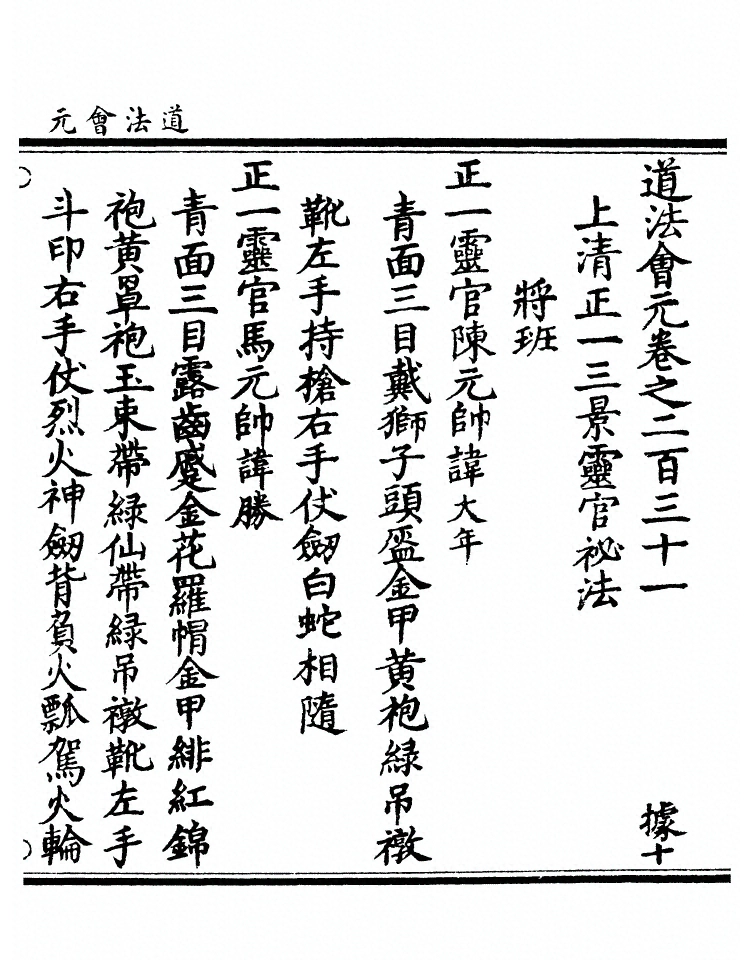 道法會元
道法會元卷之二百三十一 據十
上清正一三景靈官祕法
將班
正一靈官陳元帥諱大年
青面三目戴獅子頭盔金甲黃袍綠吊襪
靴左手持槍右手仗劒白蛇相隨
正一靈官馬元帥諱勝
青面三目露齒蹙金花羅帽金甲緋紅錦
袍黃罩袍玉束帶綠仙帶綠吊襪靴左手
斗印右手仗烈火神劒背負火瓢駕火輪